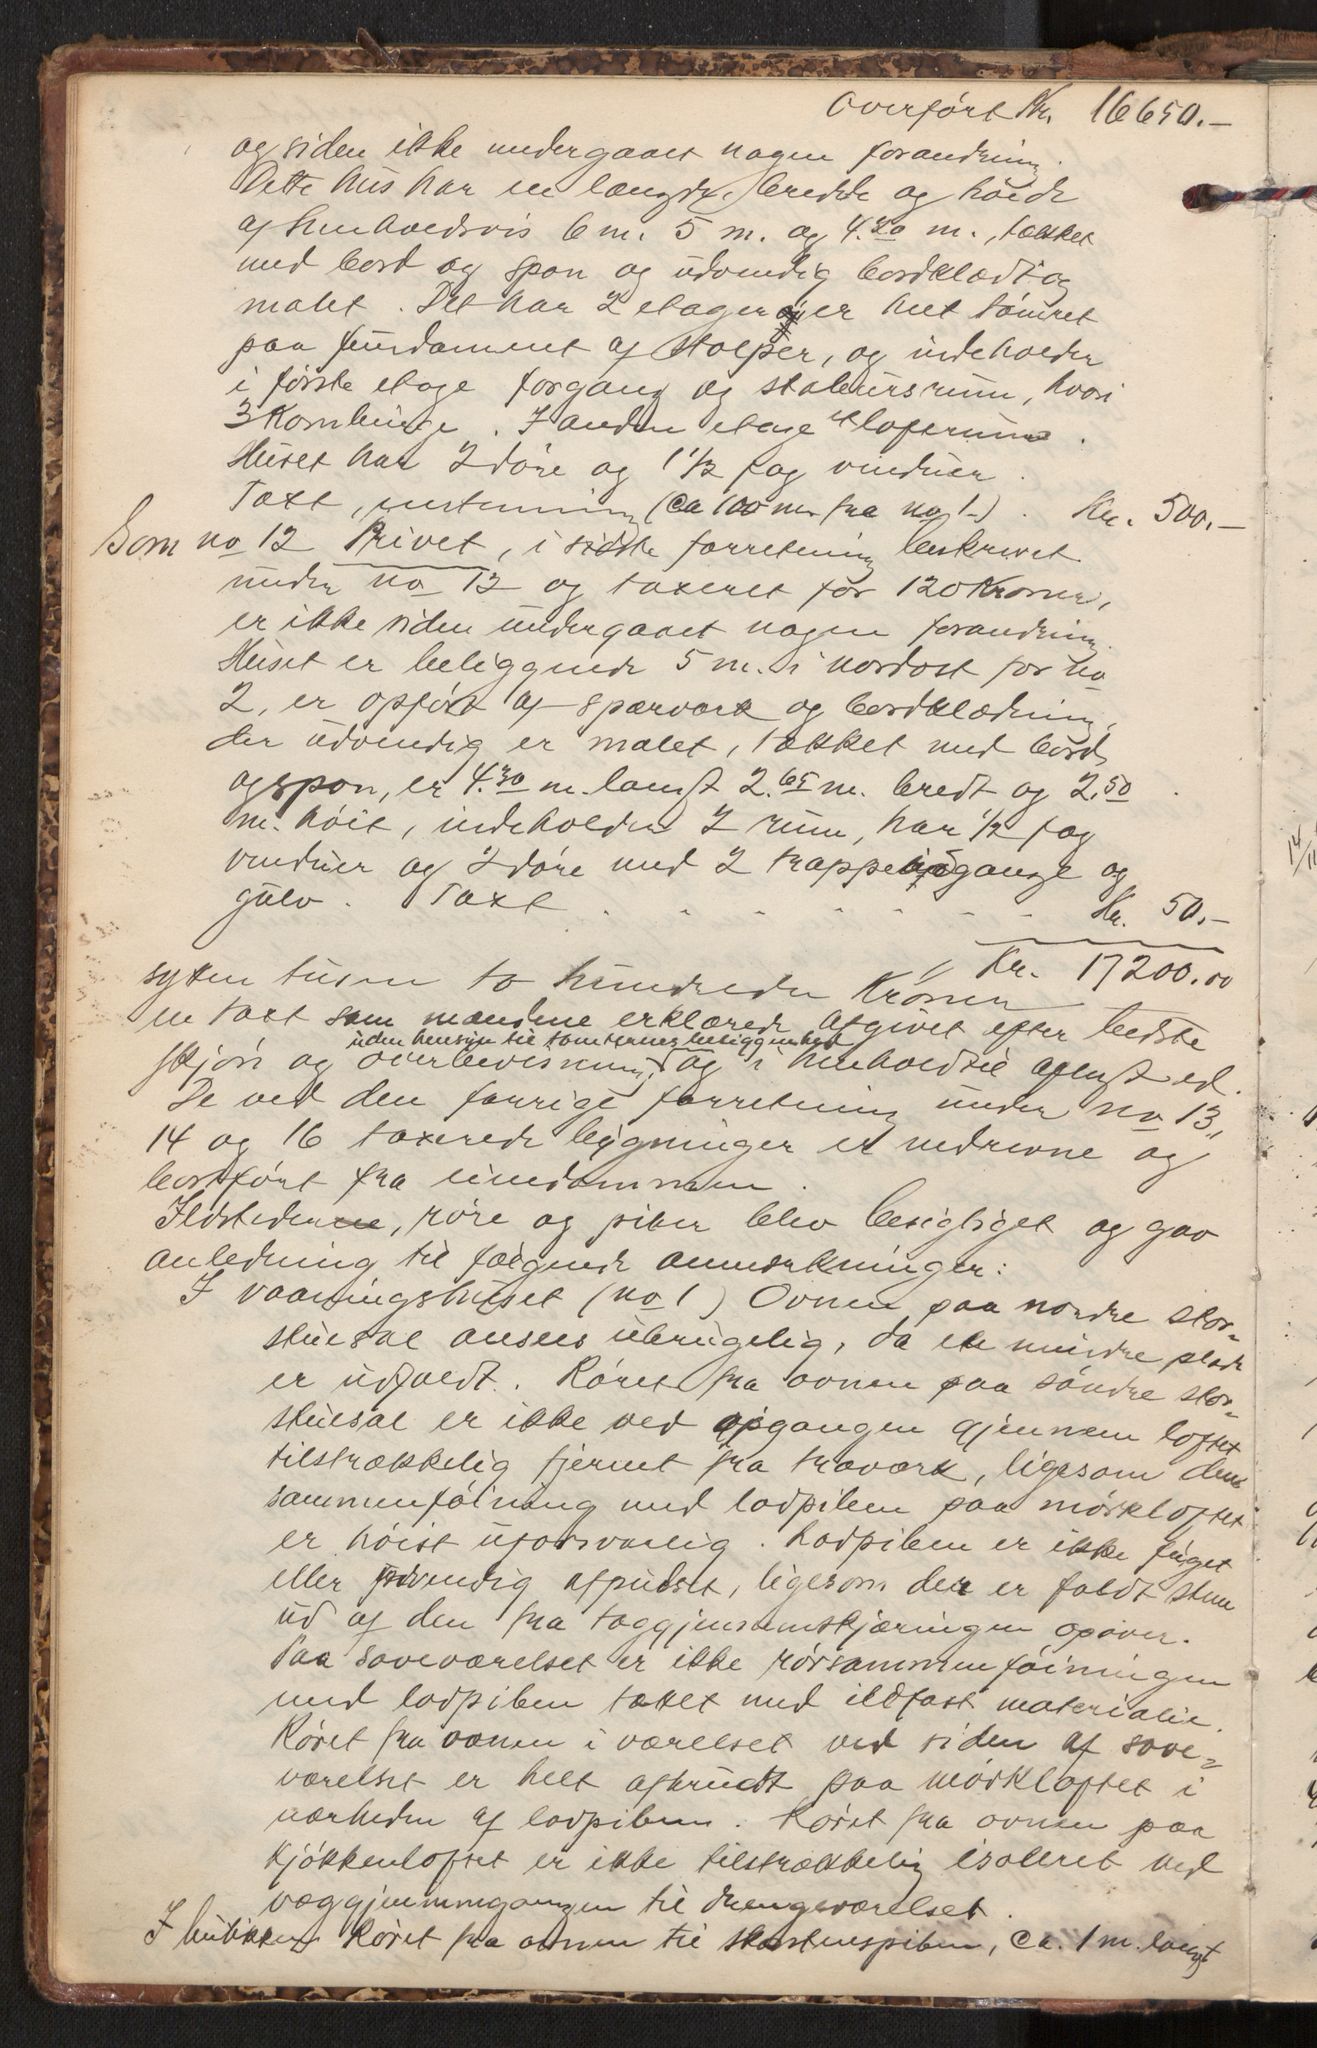 Overført Kr. 16650.-
og siden ikke undergaaet nogen forandring.
Dette hus har en længde, bredde og høide
af henholdsvis 6 m. 5 m. og 4.20 m., tækket
med bord og spon og udvendig bordklædt og
malet. Det har 2 etager er helt tømret
paa fundament af stolper, og indeholder
i første etage forgang og stabursrum, hvori
3 Kornbinge. I anden etage loftrum.
Huset har 2 døre og 1 1/2 fag vinduer.
Taxt, (ca 100 m. fra no 1.) . Kr. 500.-
Som no 12 Privet, i sidste forretning beskrevet
under no 12 og taxeret for 120 Kroner,
er ikke siden undergaaet nogen forandring.
Huset er beliggende 5 m. i nordost for no
2, er opført af spærværk og bordklædning,
der udvendig er malet, tækket med bord
og spon, er 4.30 m. langt 2.65 m. bredt og 2.50
m. høit, indeholder 2 rum, har 1/2 fag
vinduer og 2 døre med 2 trappe gange og
gulv. Taxt . . . . . . . Kr. 50.-
Kr. 17200.00
sytten tusen to hundrede Kroner
en taxt som mændene erklærede afgivet efter bedste
uden hensyn til tomternes beliggenhed
skjøn og overbevisning og i henhold til aflagt ed.
De ved den forrige forretning under no 13,
14 og 16 taxerede bygninger er nedrevne og
bortført fra eiendommen.
Ildstederne, røre og piber blev besigtiget og gav
anledning til følgende anmerkninger:
I vaaningshuset (no 1) Ovnen paa nordre stor-
stuesal ansees ubrugelig, da en mindre plade
er udfaldt. Røret fra ovnen paa søndre stor-
stuesal er ikke ved opgangen gjennem loftet
tilstrækkelig fjernet fra træværk, ligesom dens
sammenføining med lodpiben paa mørkloftet
er høist uforsvarlig. Lodpiben er ikke fuget
eller udvendig afpudset, ligesom der er faldt stene
ud af den fra taggjennemskjæringen opover.
Paa soveværelset er ikke rørsammenføiningen
med lodpiben tættet med ildfast materialie.
Røret fra ovnen i værelset ved siden af sove-
værelset er helt afbrudt paa mørkloftet i
nærheden af lodpiben. Røret fra ovnen paa
kjøkkenloftet er ikke tilstrækkelig isoleret ved
væggjennemgangen til drengeværelset.
I butikken Røret fra ovnen til skorstenspiben, ca. 1 m. langt